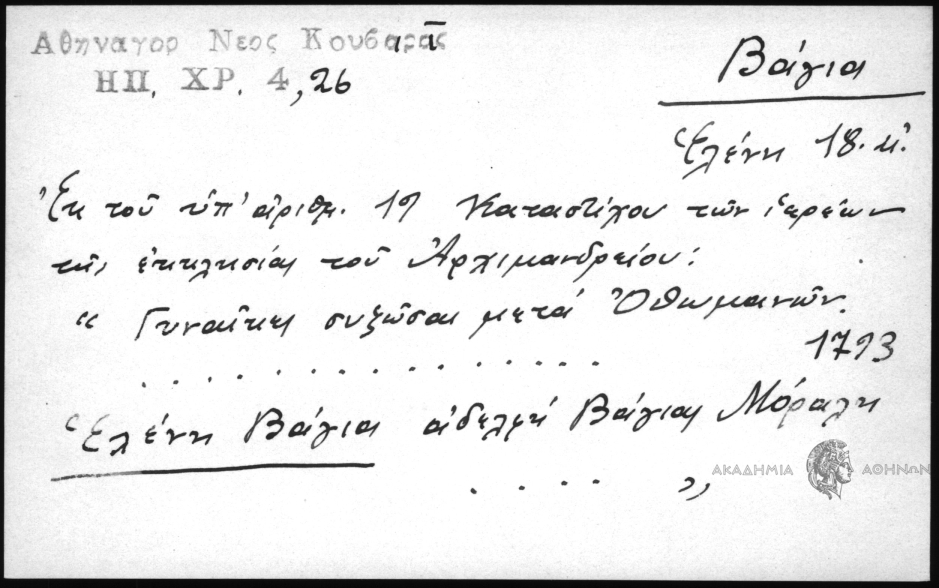 Αθηναγορ Νεος Κουβαρᾶς
ΗΠ. ΧΡ. 4,26
Βάγια
Ἑλένη 18. κ.
Ἐκ τοῦ ὑπ' ἀριθμ. 19 Καταστίχου τῶν ἱερέων
τῆς ἐκκλησίας τοῦ Ἀρχιμανδρείου:
“ Γυναῖκες συζῶσαι μετά Ὀθωμανῶν.
1793
. . . . . . . . . . . . . . . . . .
Ἑλένη Βάγιας ἀδελφή Βάγιας Μόραλη
. . . . ”
ΑΚΑΔΗΜΙΑ ΑΘΗΝΩΝ